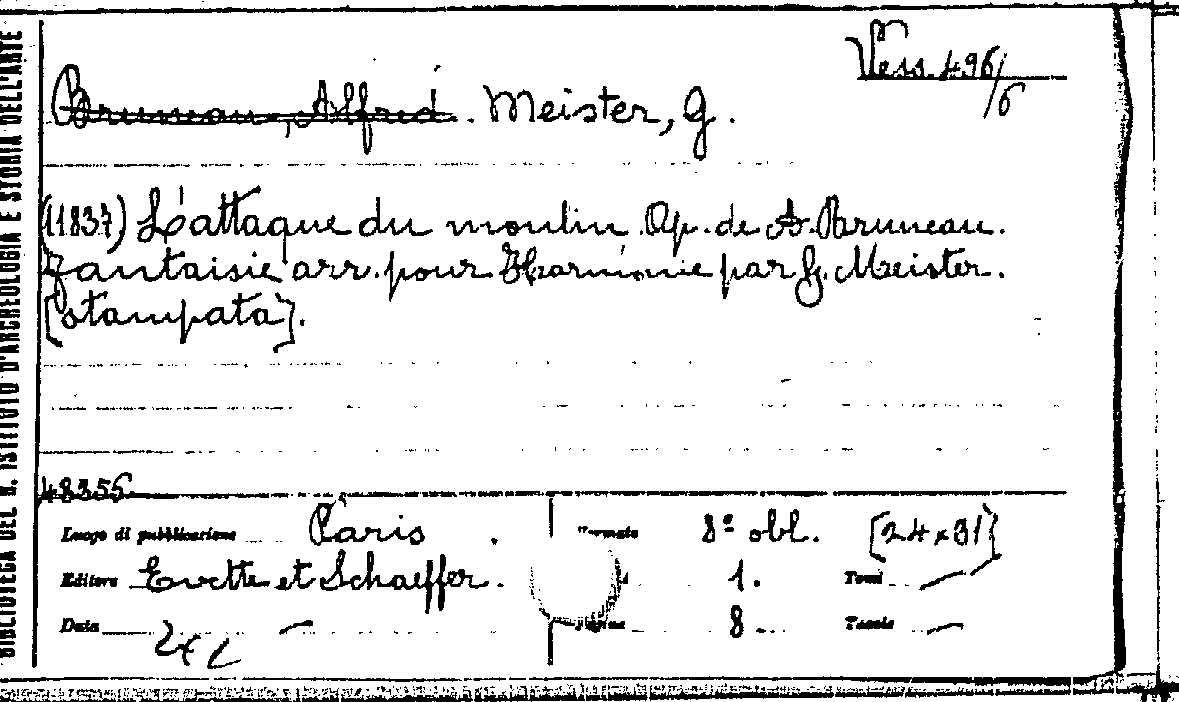 BIBLIOTECA DEL R. ISTITUTO D'ARCHEOLOGIA E STORIA DELL'ARTE
Vess. 496/6
Bruneau, Alfred. Meister, G.
(11837) L'attaque du moulin. Op. de A. Bruneau.
Fantaisie arr. pour Harmonie par G. Meister.
[stampata].
48355
Luogo di pubblicazione Paris. Formato 8º obl. [24x31]
Editore Evette et Schaeffer. 1. Tomi —
Data — Pagine 8 Tavole —